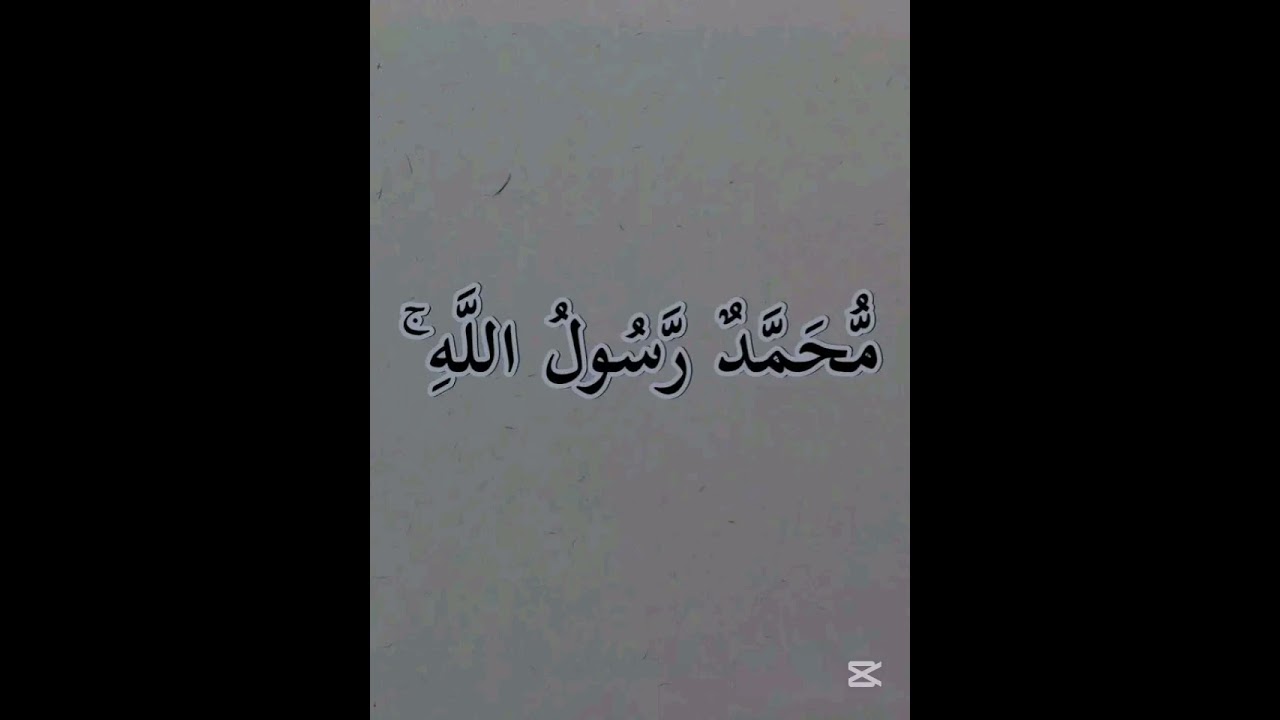 مُّحَمَّدٌ رَّسُولُ اللَّهِ ۚ